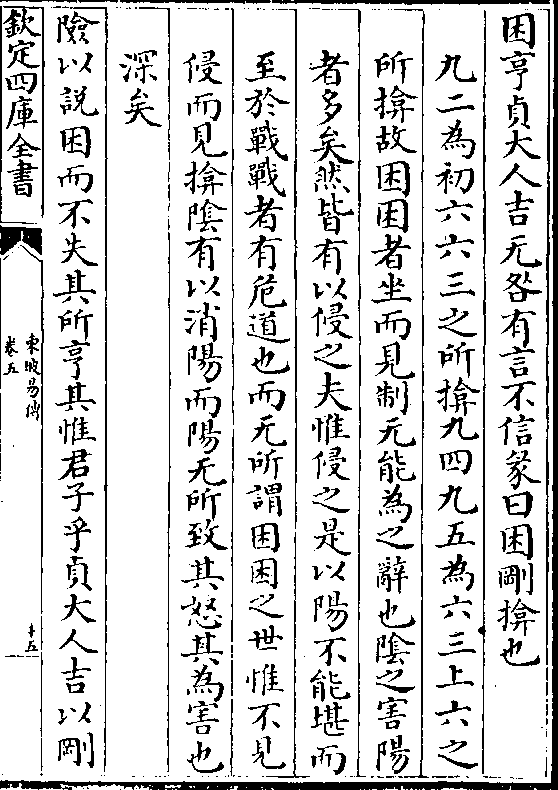 困亨貞大人吉无咎有言不信彖曰困剛揜也
九二為初六六三之所揜九四九五為六三上六之
所揜故困困者坐而見制无能為之辭也陰之害陽
者多矣然皆有以侵之夫惟侵之是以陽不能堪而
至於戰戰者有危道也而无所謂困困之世惟不見
侵而見揜陰有以消陽而陽无所致其怒其為害也
深矣
險以說困而不失其所亨其惟君子乎貞大人吉以剛
欽定四庫全書
東坡易傳
卷五
十五